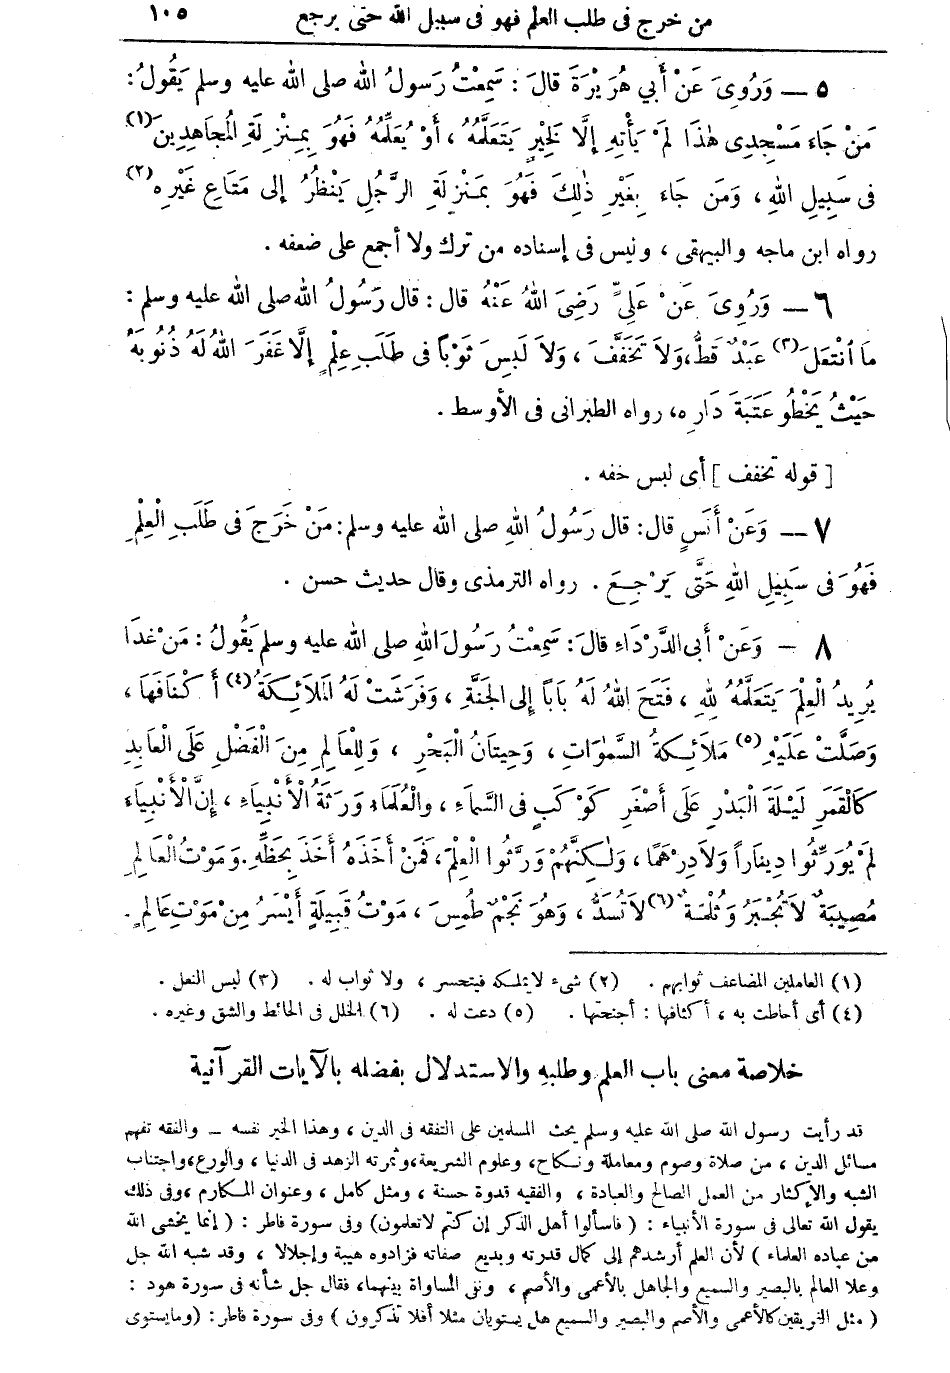 من خرج فى طلب العلم فهو فى سبيل الله حتى يرجع ١٠٥
٥ — وَرُوِىَ عَنْ أَبِي هُرَيْرَةَ قَالَ : سَمِعْتُ رَسُولُ الله صلى الله عليه وسلم يَقُولُ :
مَنْ جَاءَ مَسْجِدِى هٰذَا لَمْ يَأْتِهِ إِلَّا لَخِيْرٍ يَتَعَلَّمُهُ ، أَوْ يُعَلِّمُهُ فَهُوَ بِمِنْزِلَةِ الْمُجَاهِدِينَ (١)
فى سَبِيلِ اللهِ ، وَمَن جَاءَ بِغَيْرِ ذٰلِكَ فَهُوَ بِمَنْزِلَةِ الرَّجُلِ يَنْظُرُ إِلى مَتَاعِ غَيْرِهِ (٢)
رواه ابن ماجه والبيهقى ، وليس فى إسناده من ترك ولا أجمع على ضعفه .
٦ — وَرُوِىَ عَنْ عَلِىٍّ رَضِىَ اللهُ عَنْهُ قال : قال رَسُولُ الله صلى الله عليه وسلم :
مَا انْتَعَلَ (٣) عَبْدٌ قَطُّ، وَلاَ تَخَفَّفَ ، وَلاَ لَبِسَ ثَوْبًا فى طَلَبِ عِلْمٍ إِلَّا غَفَرَ اللهُ لَهُ ذُنُوبَهُ
حَيْثُ يَخْطُو عَتَبَةَ دَارِهِ، رواه الطبرانى فى الأوسط .
[ قوله تخفف ] أى لبس خفه .
٧ — وَعَنْ أَنَسٍ قال : قال رَسُولُ اللهِ صلى الله عليه وسلم : مَنْ خَرَجَ فى طَلَبِ الْعِلْمِ
فَهُوَ فى سَبِيلِ اللهِ حَتَّى يَرْجِعَ . رواه الترمذى وقال حديث حسن .
٨ — وَعَنْ أَبى الدَّرْدَاءِ قَالَ : سَمِعْتُ رَسُولَ اللهِ صلى الله عليه وسلم يَقُولُ : مَنْ غَدَا
يُرِيدُ الْعِلْمَ يَتَعَلَّمُهُ لِلهِ ، فَتَحَ اللهُ لَهُ بَابًا إِلى الْجَنَّةِ ، وَفَرَشَتْ لَهُ الْمَلاَئِكَةُ (٤) أَكْنَافَهَا ،
وَصَلَّتْ عَلَيْهِ (٥) مَلاَئِكَةُ السَّمٰوَاتِ ، وَحِيتَانُ الْبَحْرِ ، وَلِلْعَالِمِ مِنَ الْفَضْلِ عَلَى الْعَابِدِ
كَالْقَمَرِ لَيْلَةَ الْبَدْرِ عَلَى أَصْغَرِ كَوْكَبٍ فى السَّمَاءِ ، وَالْعُلَمَاءُ وَرَثَةُ الْأَنْبِيَاءِ ، إِنَّ الْأَنْبِيَاءَ
لَمْ يُوَرِّثُوا دِينَاراً وَلاَدِرْهَمًا ، وَلٰكِنَّهُمْ وَرَّثُوا الْعِلْمَ ، فَمَنْ أَخَذَهُ أَخَذَ بِحَظِّهِ . وَمَوْتُ الْعَالِمِ
مُصِيبَةٌ لاَ تُجْبَرُ وَثُلْمَةٌ (٦) لاَ تُسَدُّ ، وَهُوَ نَجْمٌ طُمِسَ ، مَوْتُ قَبِيلَةٍ أَيْسَرُ مِنْ مَوْتِ عَالِمٍ .
(١) العاملين المضاعف ثوابهم . (٢) شىء لايملكه فيتحسر ، ولا ثواب له . (٣) لبس النعل .
(٤) أى أحاطت به ، أكنافها : أجنحتها . (٥) دعت له . (٦) الخلل فى الحائط والشق وغيره .
خلاصة معنى باب العلم وطلبه والاستدلال بفضله بالآيات القرآنية
قد رأيت رسول الله صلى الله عليه وسلم يحث المسلمين على التفقه فى الدين ، وهذا الخير نفسه — والفقه تفهم
مسائل الدين ، من صلاة وصوم ومعاملة ونكاح، وعلوم الشريعة، وثمرته الزهد فى الدنيا ، والورع، واجتناب
الشبه والإكثار من العمل الصالح والعبادة ، والفقيه قدوة حسنة ، ومثل كامل ، وعنوان المكارم ، وفى ذلك
يقول الله تعالى فى سورة الأنبياء : ( فاسألوا أهل الذكر إن كنتم لاتعلمون) وفى سورة فاطر : ( إنما يخشى الله
من عباده العلماء ) لأن العلم أرشدهم إلى كمال قدرته وبديع صفاته فزادوه هيبة وإجلالا ، وقد شبه الله جل
وعلا العالم بالبصير والسميع والجاهل بالأعمى والأصم ، ونفى المساواة بينهما، فقال جل شأنه فى سورة هود :
( مثل الفريقين كالأعمى والأصم والبصير والسميع هل يستويان مثلا أفلا تذكرون ) وفى سورة فاطر : (ومايستوى